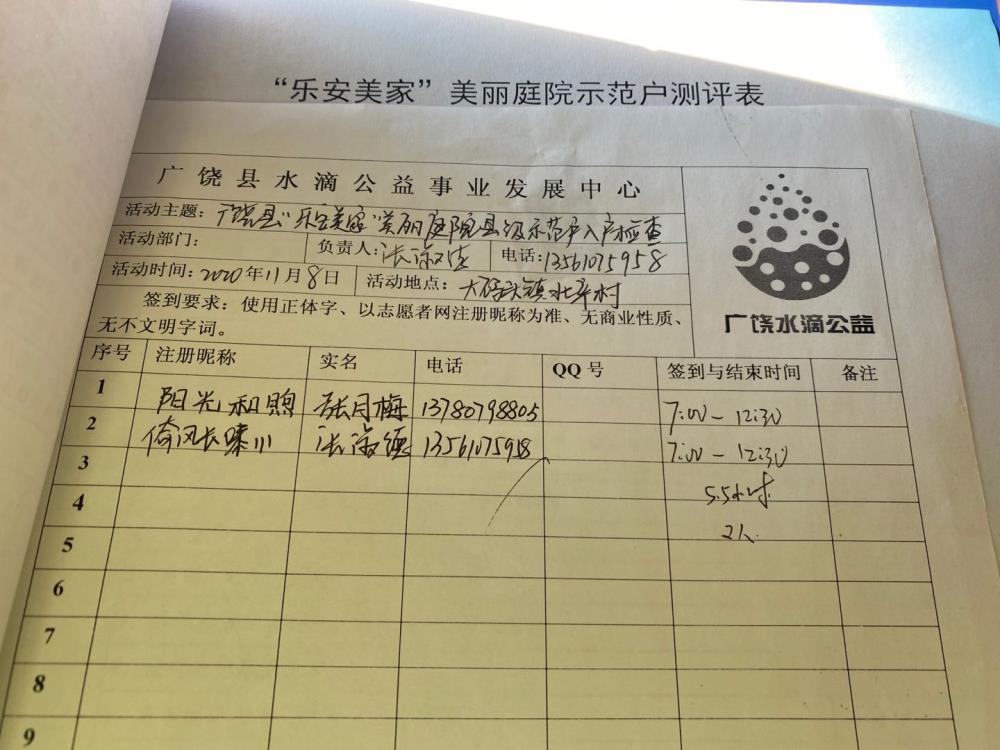 “乐安美家”美丽庭院示范户测评表
广饶县水滴公益事业发展中心
活动主题：广饶县“乐安美家”美丽庭院县级示范户入户检查
活动部门： 负责人： 电话：13561075958
活动时间：2020年11月8日 活动地点：大码头镇北辛村
签到要求：使用正体字、以志愿者网注册昵称为准、无商业性质、
无不文明字词。
广饶水滴公益
序号 注册昵称 实名 电话 QQ号 签到与结束时间 备注
1 阳光和煦 张月梅 13780798805 7:00-12:30
2 倚风长啸川 13561075958 7:00-12:30
3 5.5小时
4 2人
5
6
7
8
9